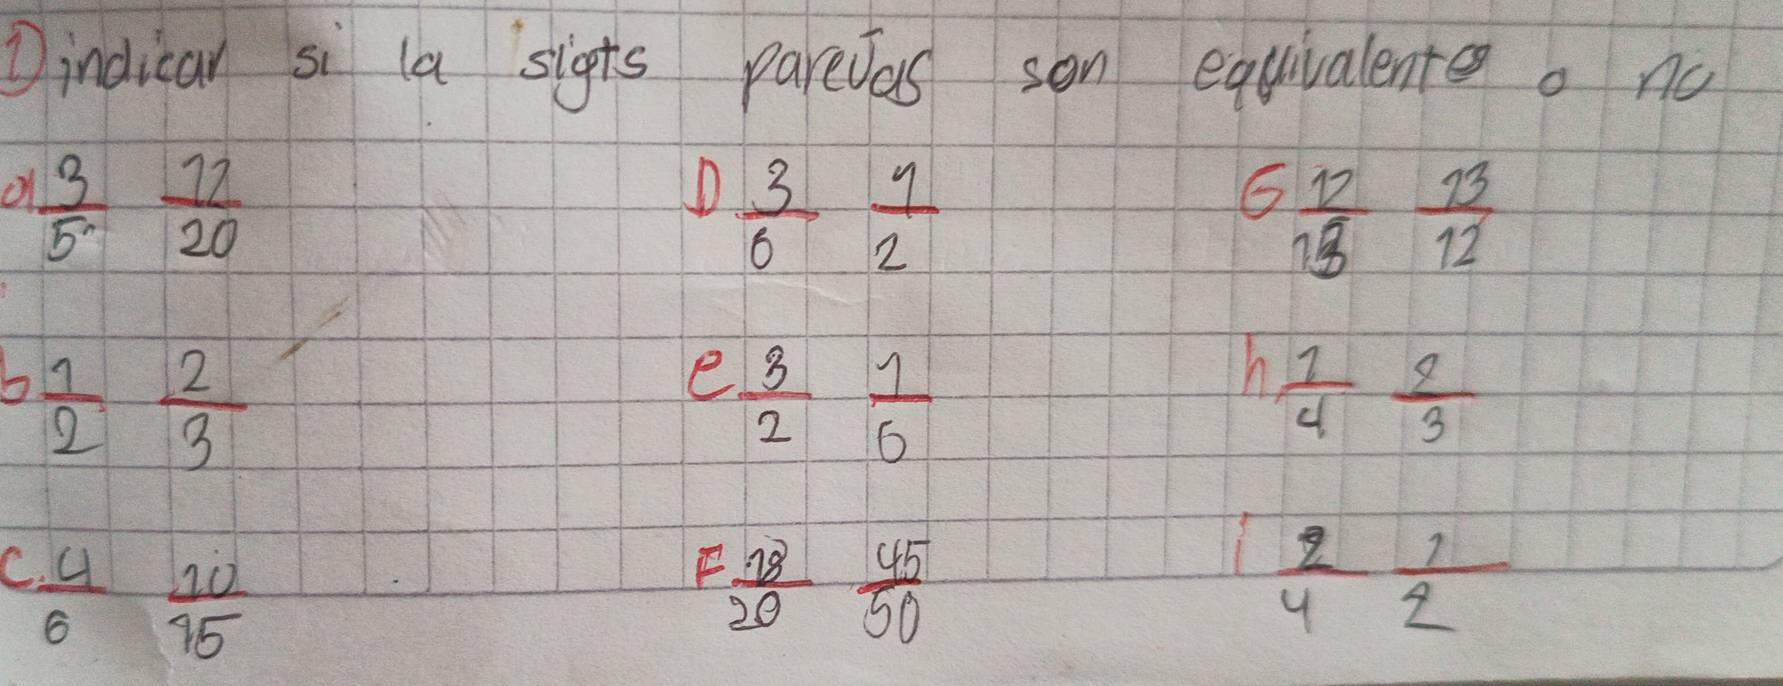 1) indicar si la sigts parejas son equivalentes o no
a 3/5 12/20 D 3/6 1/2 G 12/13 13/12
b 1/2 2/3 e 3/2 1/6 h 1/4 2/3
c. 4/6 10/15 F 18/20 45/50 i 2/4 1/2